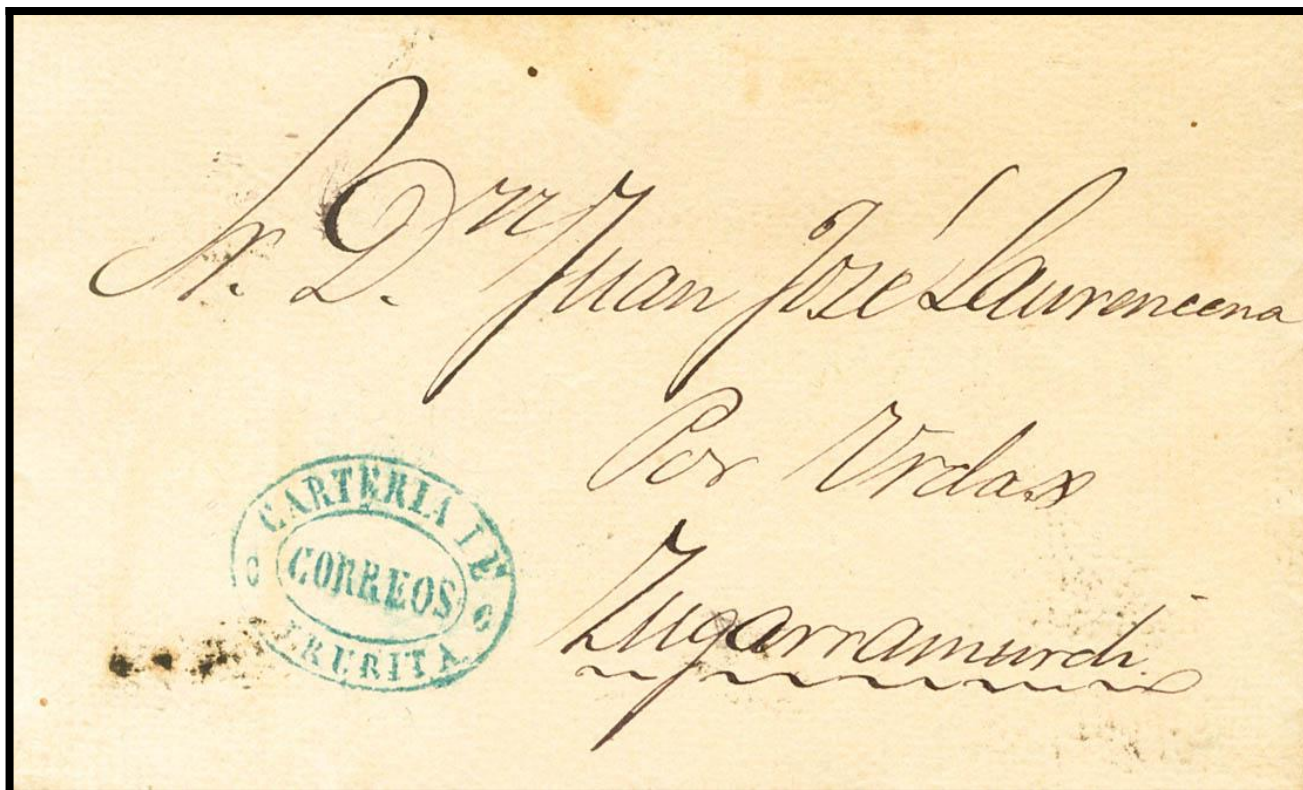 Sr. D. Dn Juan José Laurencena
Por Urdax
Zugarramurdi
CARTERIA DE
CORREOS
IRURITA